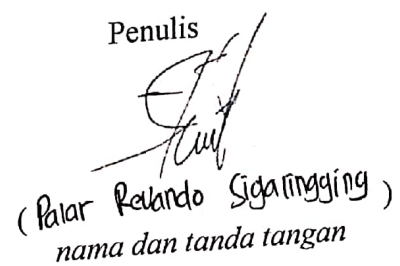 Penulis
(Palar Revando Sigalingging)
nama dan tanda tangan